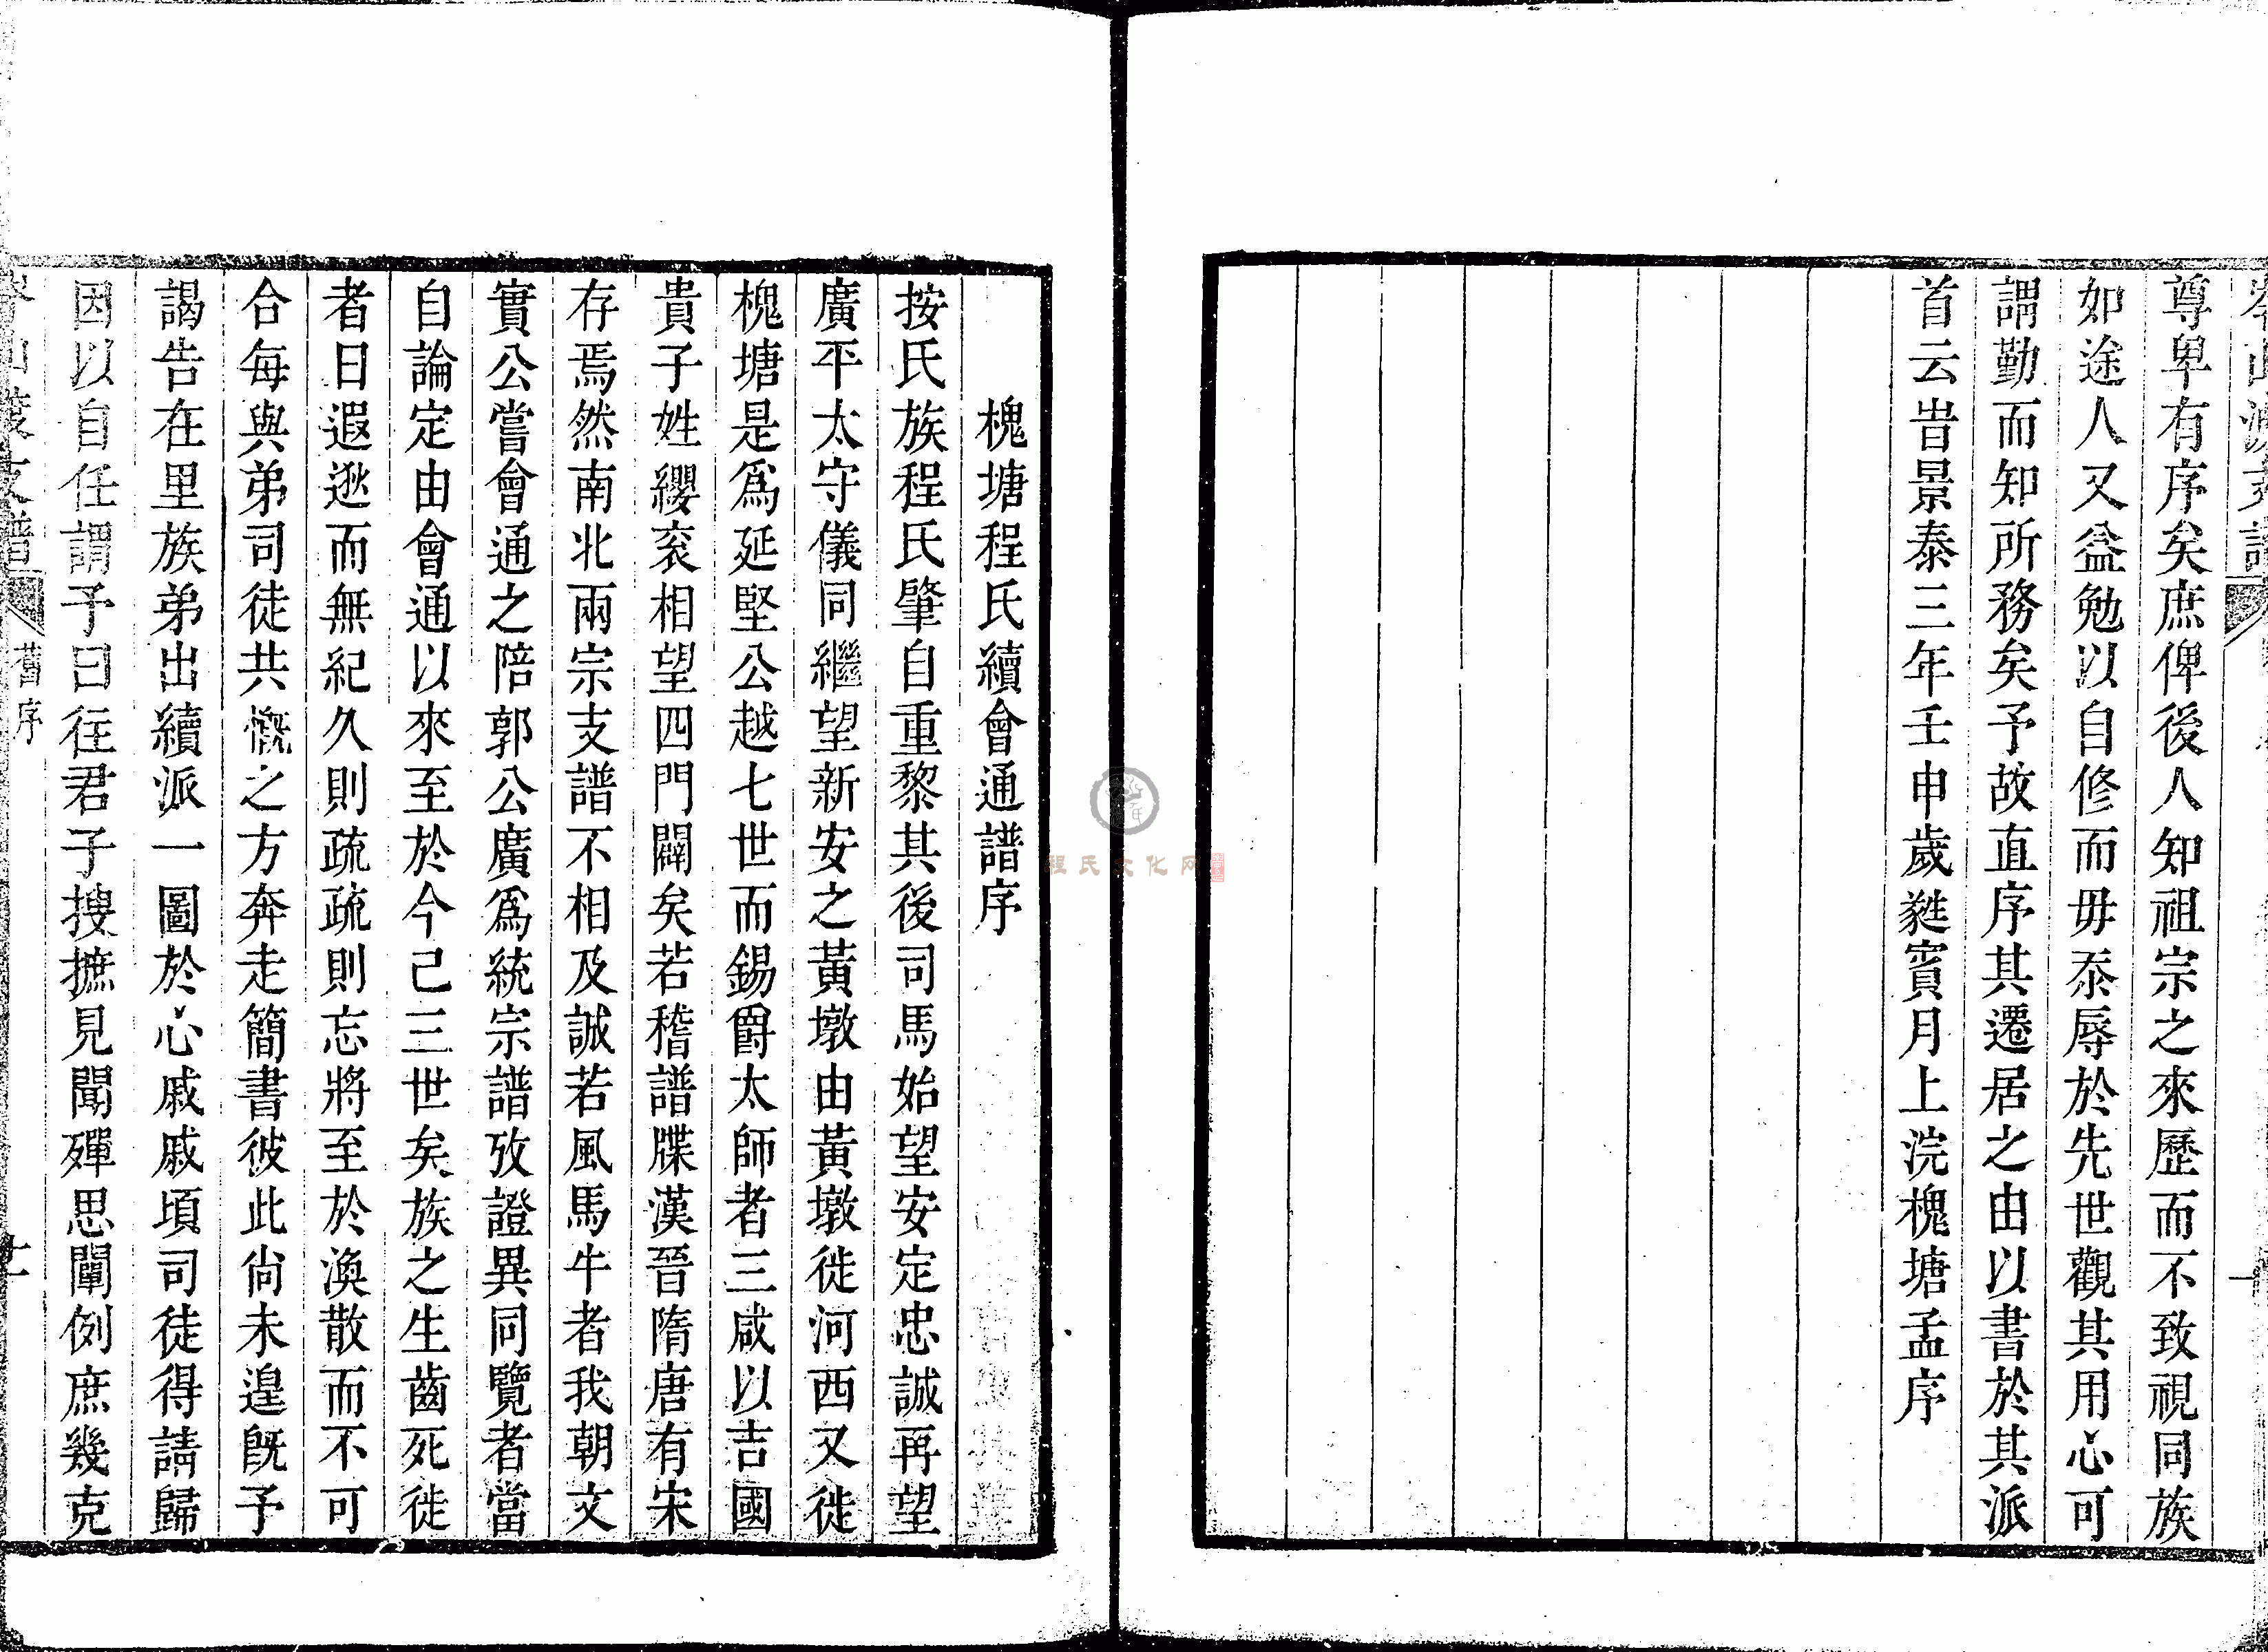 尊卑有序矣庶俾後人知祖宗之來歷而不致視同族
如途人又益勉以自修而毋忝辱於先世觀其用心可
謂勤而知所務矣予故直序其遷居之由以書於其派
首云旹景泰三年壬申歲蕤賓月上浣槐塘孟序
槐塘程氏續會通譜序
按氏族程氏肇自重黎其後司馬始望安定忠誠再望
廣平太守儀同繼望新安之黃墩由黃墩徙河西又徙
槐塘是爲延堅公越七世而錫爵太師者三咸以吉國
貴子姓纓衮相望四門闢矣若稽譜牒漢晉隋唐有宋
存焉然南北兩宗支譜不相及誠若風馬牛者我朝文
實公嘗會通之陪郭公廣爲統宗譜攷證異同覽者當
自論定由會通以來至於今已三世矣族之生齒死徙
者日遐逖而無紀久則疏疏則忘將至於渙散而不可
合每與弟司徒共慨之方奔走簡書彼此尙未遑旣予
謁告在里族弟出續派一圖於心戚戚頃司徒得請歸
因以自任謂予曰往君子搜摭見聞殫思闡例庶幾克
舊序
程氏文化网